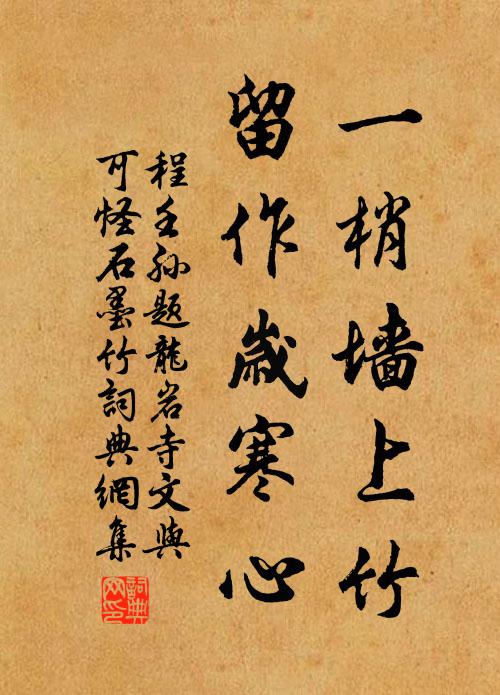 一梢墙上竹
留作歳寒心
程壬孙题龍岩寺文與
可怪石墨竹詞典網集
詞典
网印